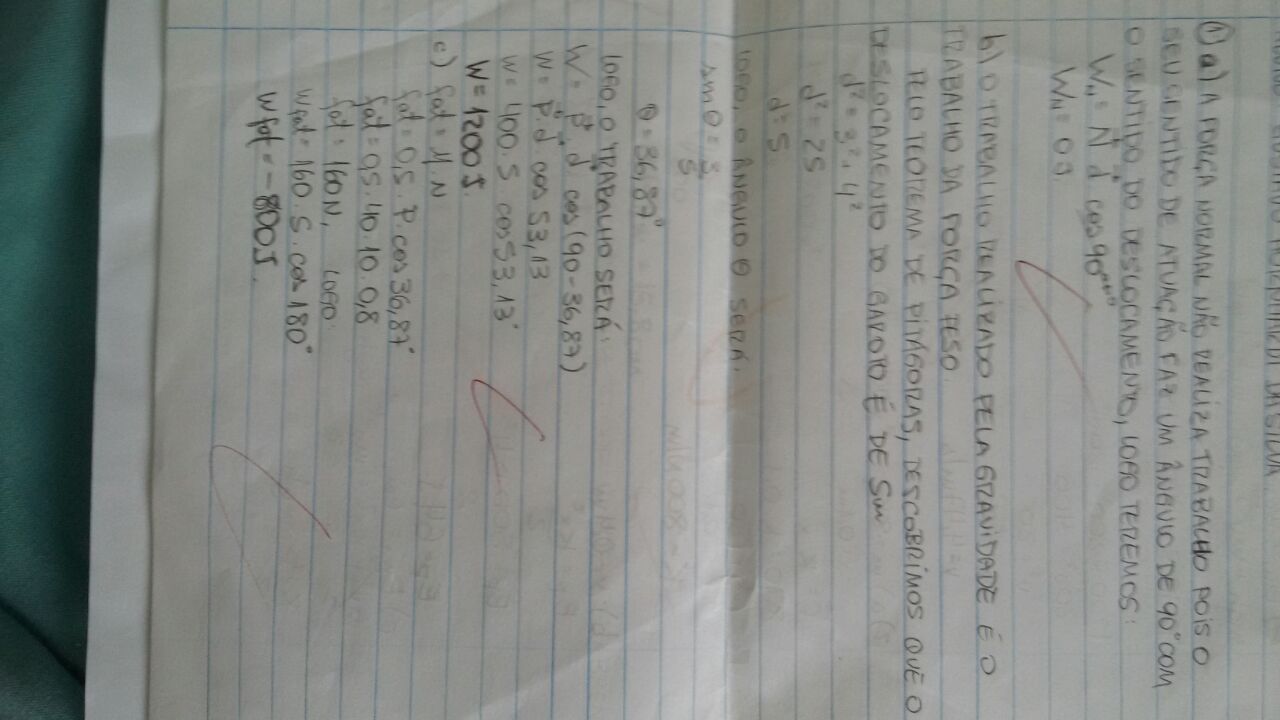 ① a) A FORÇA NORMAL NÃO REALIZA TRABALHO POIS O
SEU SENTIDO DE ATUAÇÃO FAZ UM ÂNGULO DE 90° COM
O SENTIDO DO DESLOCAMENTO, LOGO TEREMOS:
W_N = N⃗ d⃗ cos 90°
W_N = 0 J.
b) O TRABALHO REALIZADO PELA GRAVIDADE É O
TRABALHO DA FORÇA PESO.
PELO TEOREMA DE PITÁGORAS, DESCOBRIMOS QUE O
DESLOCAMENTO DO GAROTO É DE 5m
d² = 3² + 4²
d² = 25
d = 5
LOGO, O ÂNGULO θ SERÁ:
sen θ = 3/5
θ = 36,87°
LOGO, O TRABALHO SERÁ:
W = P⃗ d⃗ cos (90 - 36,87)
W = P⃗ d cos 53,13
W = 400 . 5 cos 53,13°
W = 1200 J.
c) fat = μ . N
fat = 0,5 . P . cos 36,87°
fat = 0,5 . 40 . 10 . 0,8
fat = 160 N, LOGO:
Wfat = 160 . 5 . cos 180°
Wfat = - 800 J.